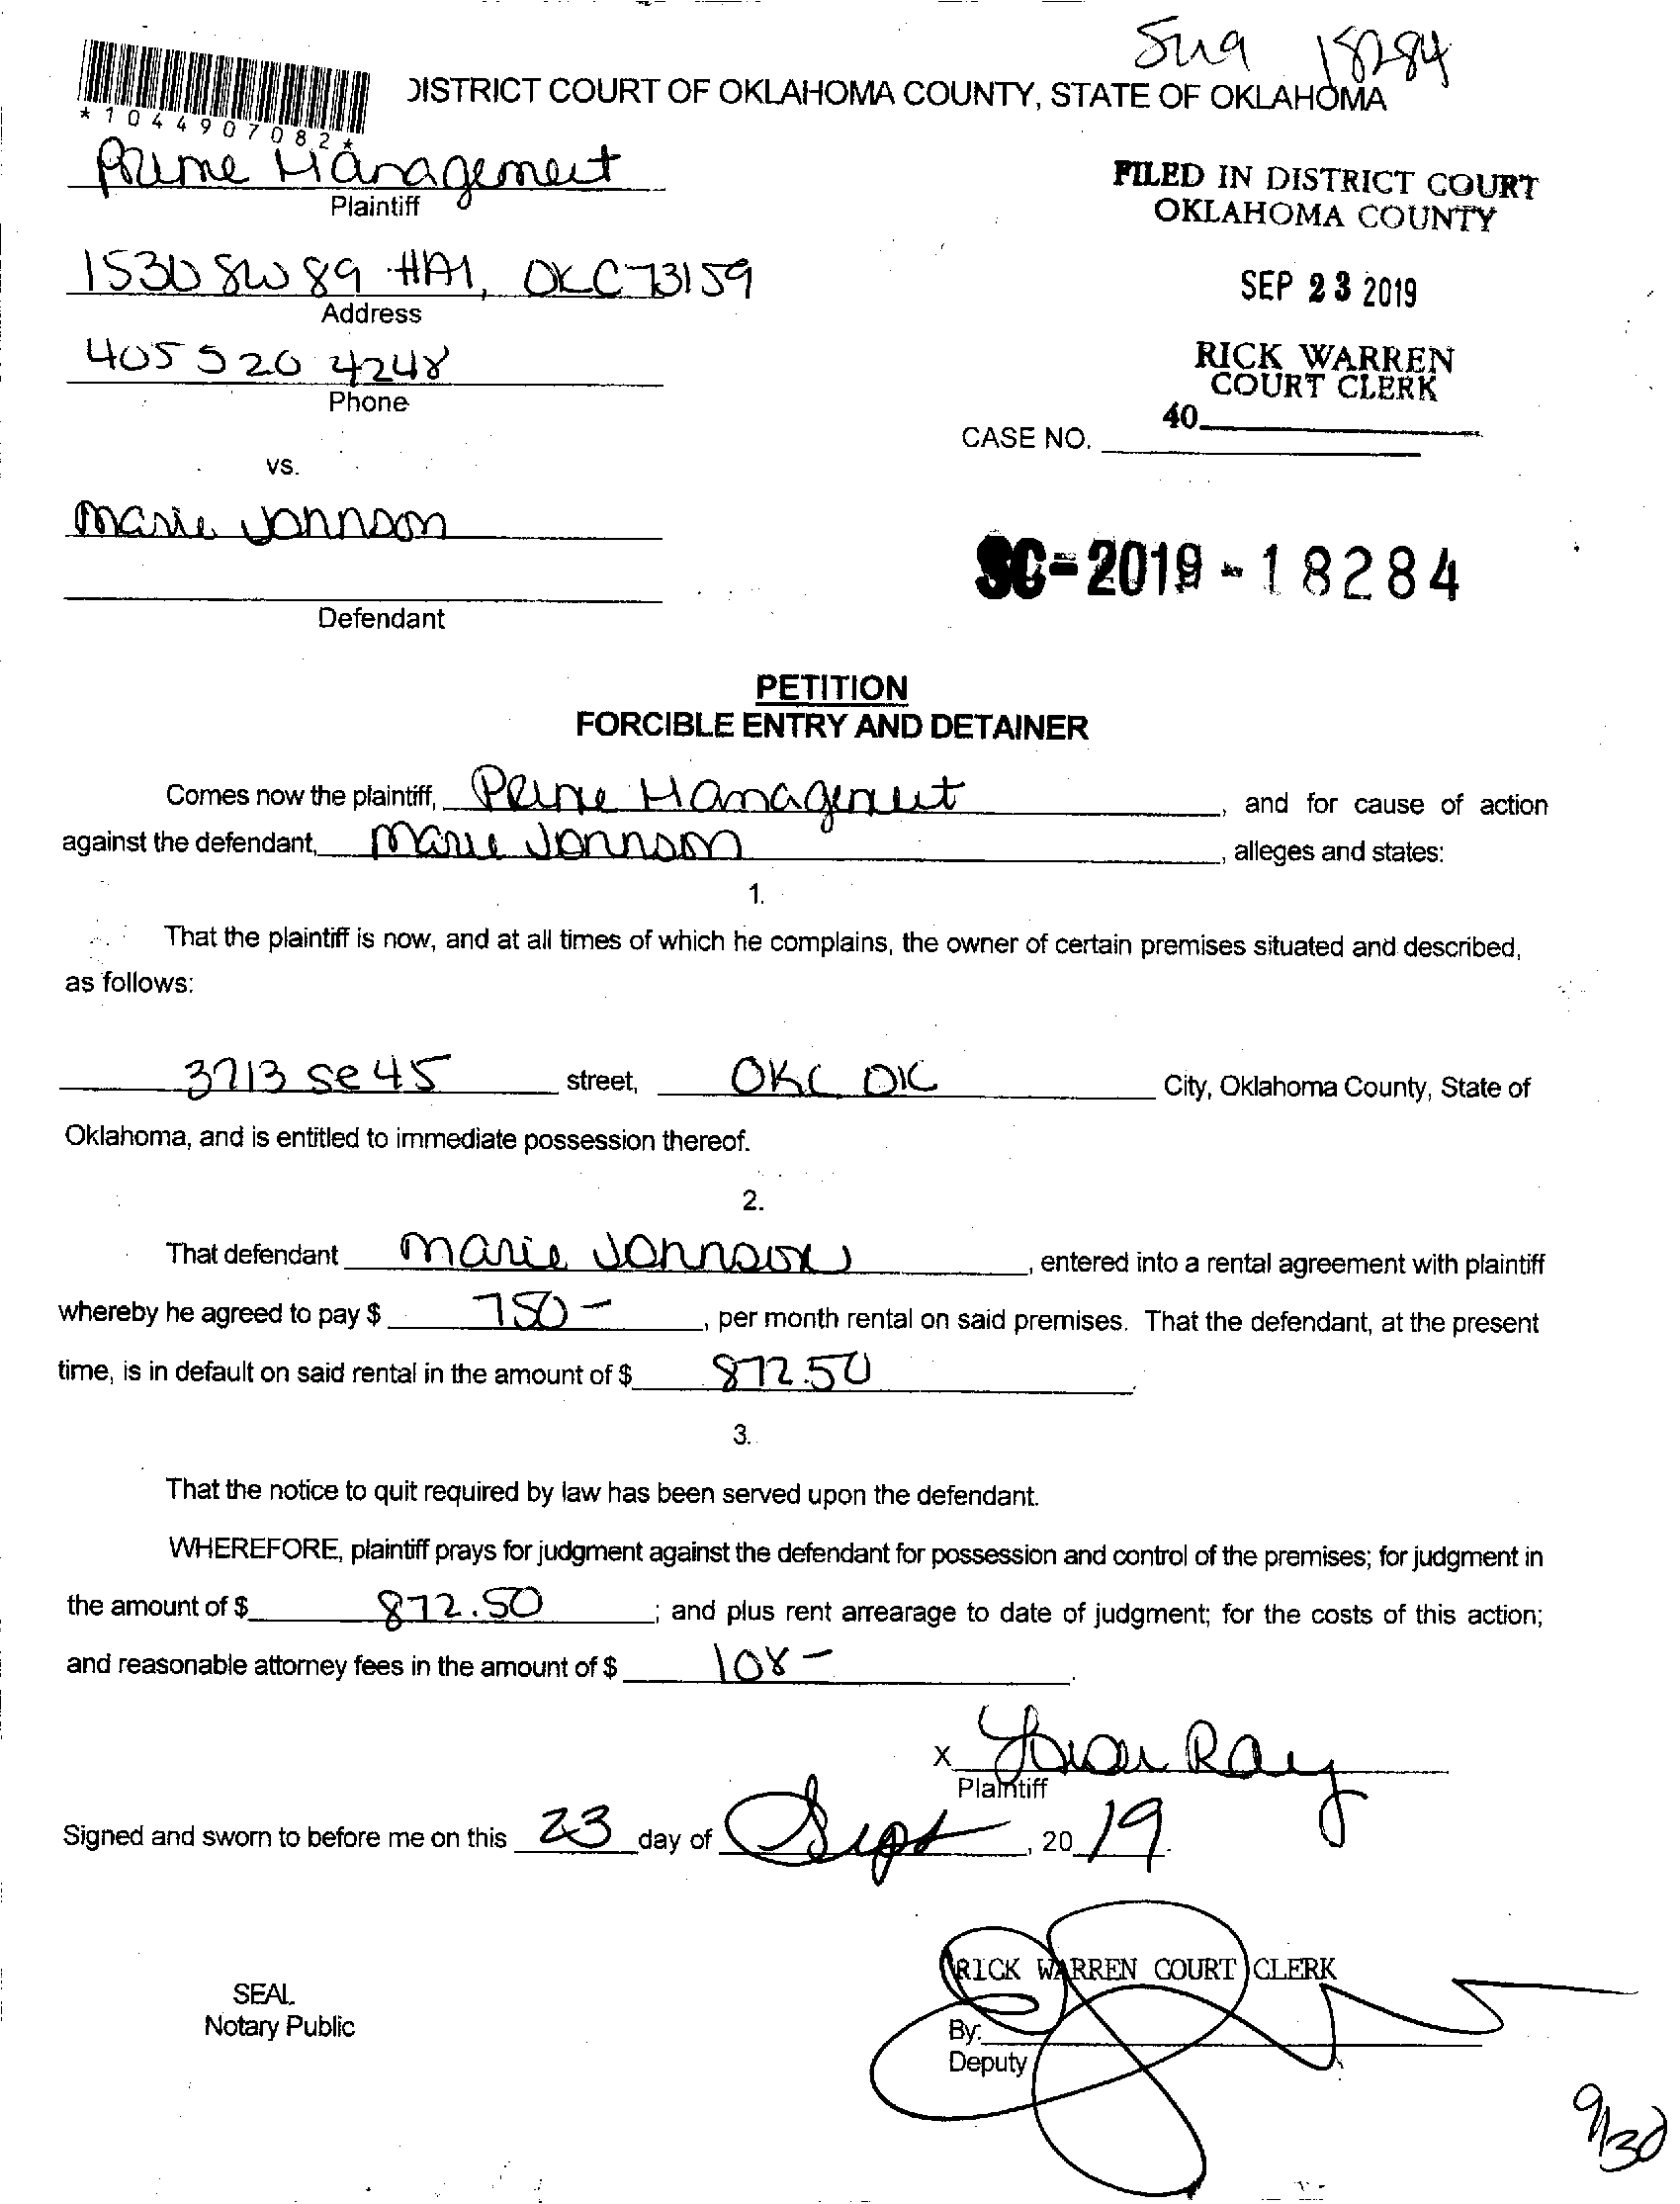 18284
DISTRICT COURT OF OKLAHOMA COUNTY, STATE OF OKLAHOMA
*1044907082*
Prime Management
Plaintiff
FILED IN DISTRICT COURT
OKLAHOMA COUNTY
1530 SW 89 #A1, OKC 73159
Address
SEP 23 2019
405 520 4248
Phone
RICK WARREN
COURT CLERK
40
CASE NO.
vs.
Marie Johnson
SC-2019-18284
Defendant
PETITION
FORCIBLE ENTRY AND DETAINER
Comes now the plaintiff, Prime Management, and for cause of action
against the defendant, Marie Johnson, alleges and states:
1.
That the plaintiff is now, and at all times of which he complains, the owner of certain premises situated and described,
as follows:
3713 SE 45 street, OKC OK City, Oklahoma County, State of
Oklahoma, and is entitled to immediate possession thereof.
2.
That defendant Marie Johnson, entered into a rental agreement with plaintiff
whereby he agreed to pay $ 750-, per month rental on said premises. That the defendant, at the present
time, is in default on said rental in the amount of $ 872.50.
3.
That the notice to quit required by law has been served upon the defendant.
WHEREFORE, plaintiff prays for judgment against the defendant for possession and control of the premises; for judgment in
the amount of $ 872.50; and plus rent arrearage to date of judgment; for the costs of this action;
and reasonable attorney fees in the amount of $ 108-.
X Ray
Plaintiff
Signed and sworn to before me on this 23 day of Sept, 2019.
RICK WARREN COURT CLERK
SEAL
Notary Public
By:
Deputy
9/30